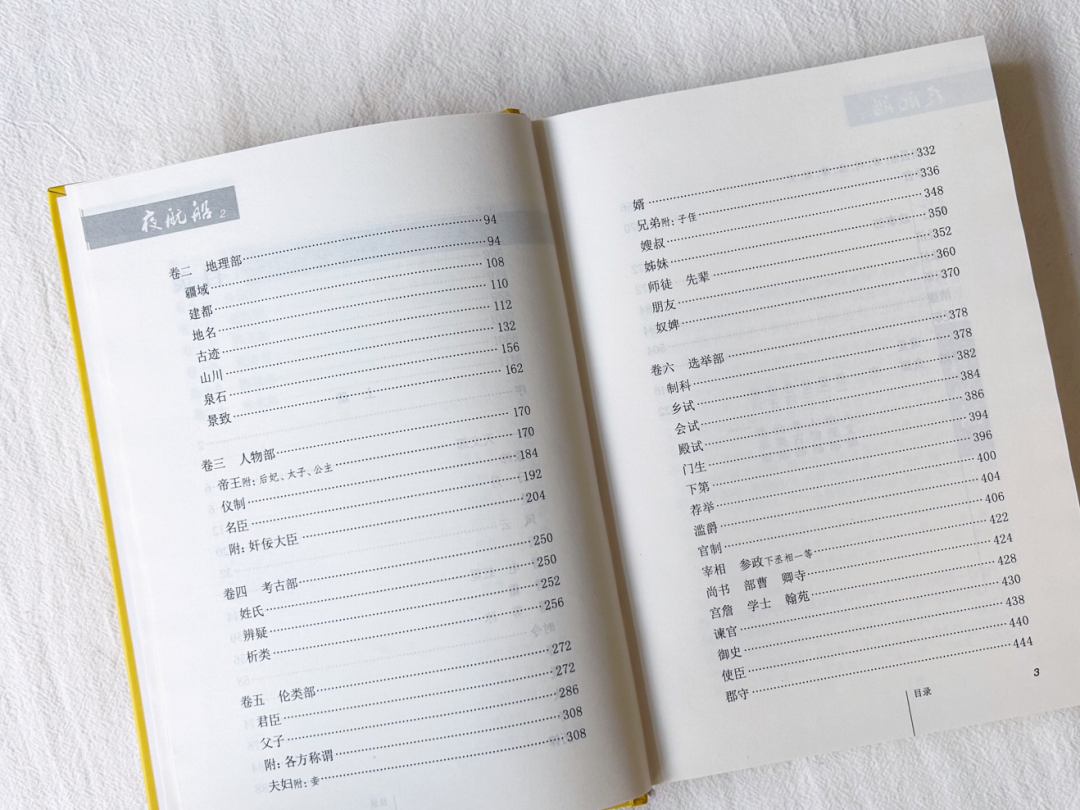 夜航船 2
卷二 地理部……94
疆域……94
建都……108
地名……110
古迹……112
山川……132
泉石……156
景致……162
卷三 人物部……170
帝王附:后妃、太子、公主……170
仪制……184
名臣……192
附:奸佞大臣……204
卷四 考古部……250
姓氏……250
辨疑……252
析类……256
卷五 伦类部……272
君臣……272
父子……286
附:各方称谓……308
夫妇附:妾……308
婿……332
兄弟附:子侄……336
嫂叔……348
姊妹……350
师徒 先辈……352
朋友……360
奴婢……370
卷六 选举部……378
制科……378
乡试……382
会试……384
殿试……386
门生……394
下第……396
荐举……400
滥爵……404
官制……406
宰相 参政下丞相一等……422
尚书 部曹 卿寺……424
宫詹 学士 翰苑……428
谏官……430
御史……438
使臣……440
郡守……444
目录
3